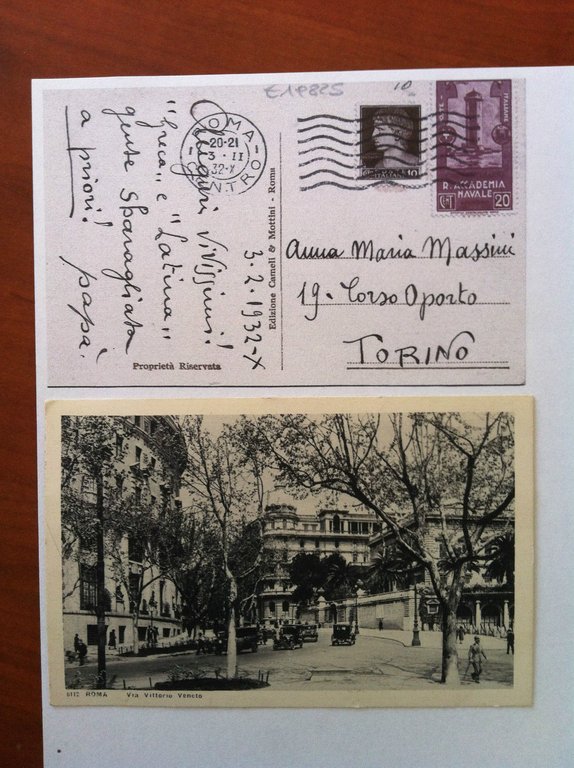 E19825
10
ROMA
CENTRO
20-21
3 · II
32-X
ITALIANE
10
R. ACCADEMIA
NAVALE
CENT
20
Auguri Vivissimi!
"Greca" e "Latina"
gente Sbaragliata
a priori! papà.
3.2.1932-X
Edizione Cameli & Mottini - Roma
Anna Maria Massini
19. Corso Oporto
TORINO
Proprietà Riservata
6112 ROMA Via Vittorio Veneto